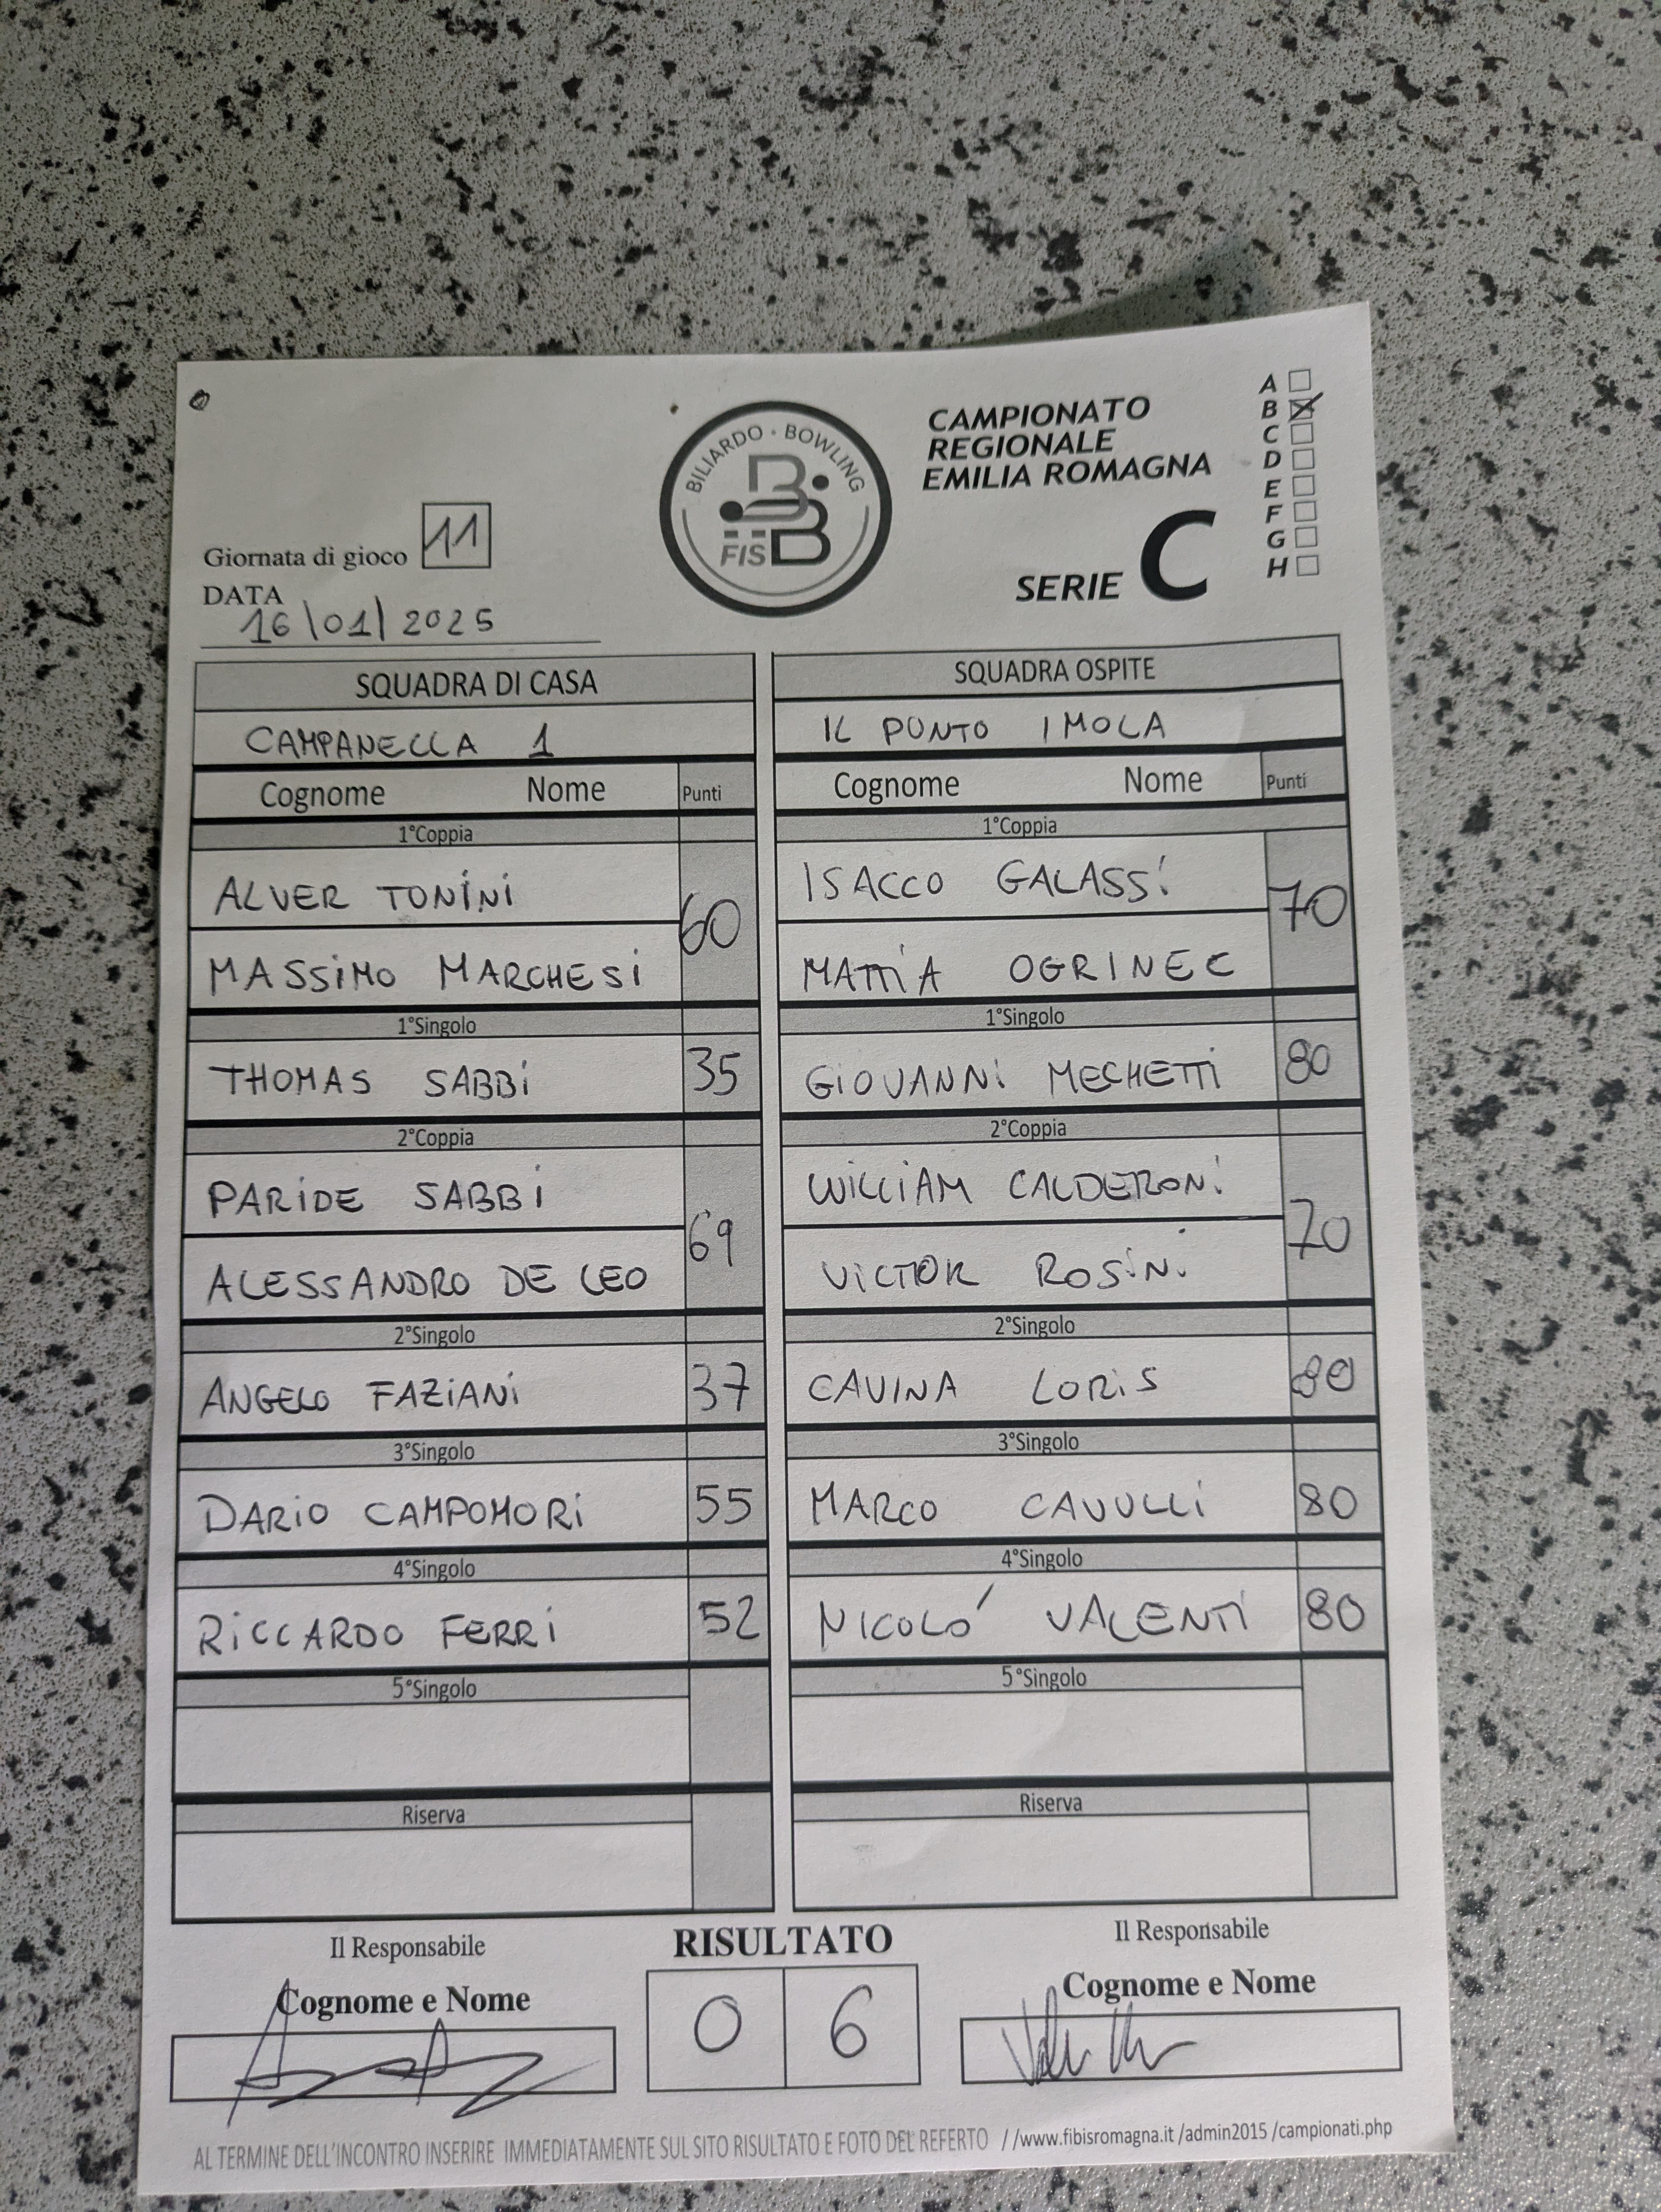 BILIARDO · BOWLING
FISBB
CAMPIONATO
REGIONALE
EMILIA ROMAGNA
SERIE C
A
B
C
D
E
F
G
H
Giornata di gioco 11
DATA
16/01/2025
SQUADRA DI CASA
CAMPANELLA 1
Cognome Nome Punti
1°Coppia
ALVER TONINI
60
MASSIMO MARCHESI
1°Singolo
THOMAS SABBI 35
2°Coppia
PARIDE SABBI
69
ALESSANDRO DE LEO
2°Singolo
ANGELO FAZIANI 37
3°Singolo
DARIO CAMPOMORI 55
4°Singolo
RICCARDO FERRI 52
5°Singolo
Riserva
SQUADRA OSPITE
IL PUNTO IMOLA
Cognome Nome Punti
1°Coppia
ISACCO GALASSI
70
MATTIA OGRINEC
1°Singolo
GIOVANNI MECHETTI 80
2°Coppia
WILLIAM CALDERONI
70
VICTOR ROSINI
2°Singolo
CAVINA LORIS 80
3°Singolo
MARCO CAVULLI 80
4°Singolo
NICOLÓ VALENTI 80
5°Singolo
Riserva
Il Responsabile
Cognome e Nome
RISULTATO
0 6
Il Responsabile
Cognome e Nome
AL TERMINE DELL'INCONTRO INSERIRE IMMEDIATAMENTE SUL SITO RISULTATO E FOTO DEL REFERTO //www.fibisromagna.it /admin2015 /campionati.php